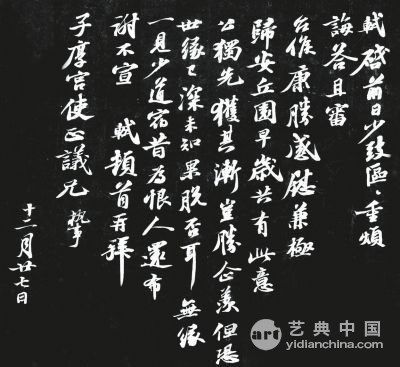 軾啓前日少致區〻重煩
誨答且審
台候康勝感慰兼極
歸安丘園早歲共有此意
公獨先獲其漸豈勝企羨但恐
世緣已深未知果脫否耳無緣
一見少道宿昔為恨人還布
謝不宣 軾頓首再拜
子厚宮使正議兄 執事
十二月廿七日
art 艺典中国
yidianchina.com